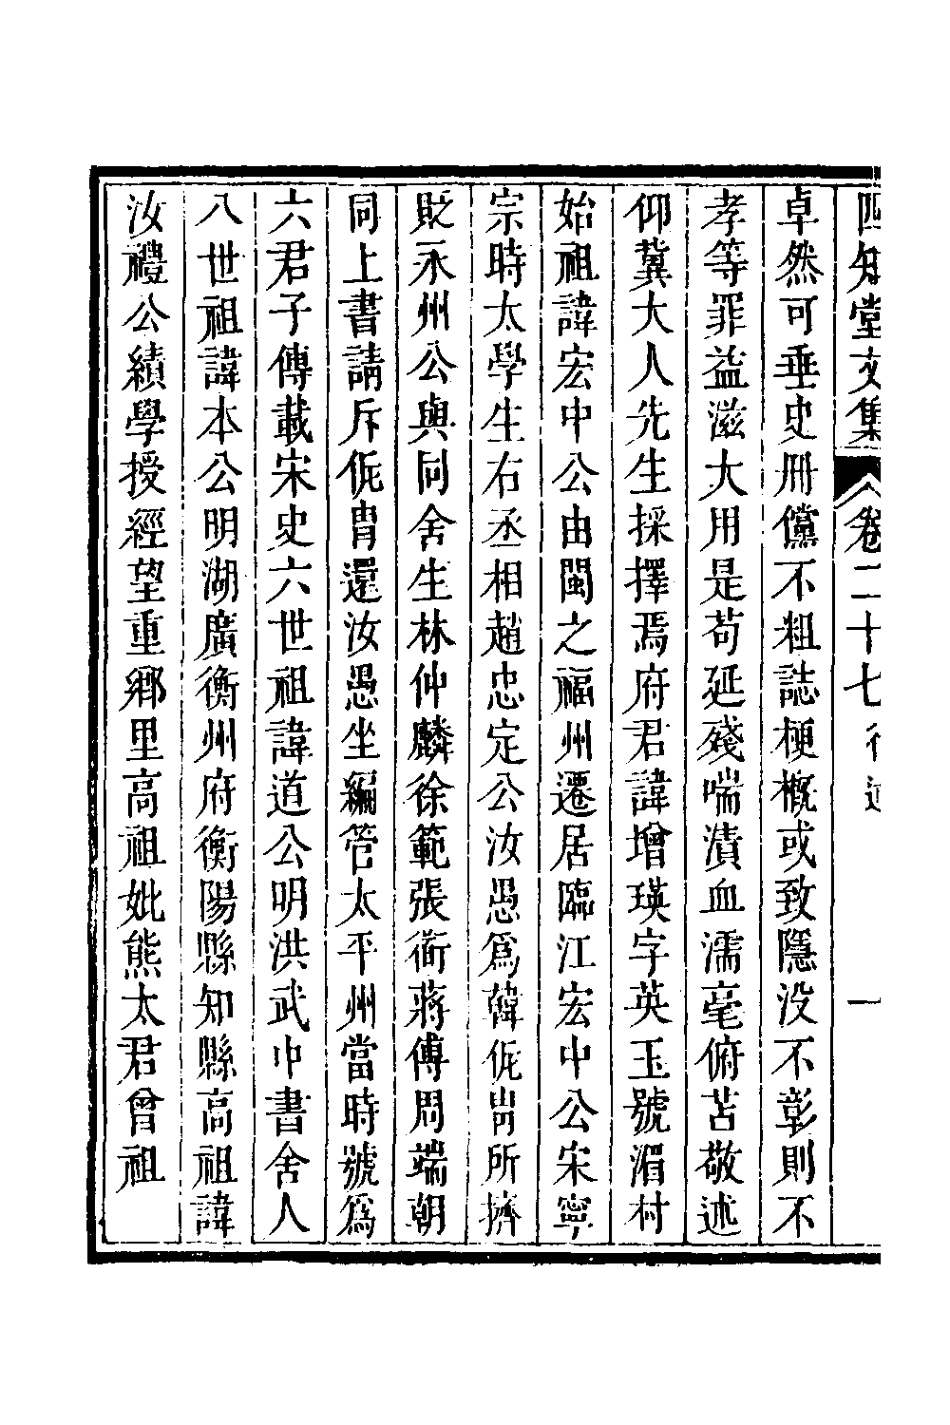 四知堂文集 卷二十七 行述 一
卓然可垂史冊儻不粗誌梗概或致隱没不彰則不
孝等罪益滋大用是苟延殘喘漬血濡毫俯苫敬述
仰冀大人先生採擇焉府君諱增瑛字英玉號湄村
始祖諱宏中公由閩之福州遷居臨江宏中公宋寧
宗時太學生右丞相趙忠定公汝愚爲韓侂冑所擠
貶永州公與同舍生林仲麟徐範張衜蔣傅周端朝
同上書請斥侂冑還汝愚坐編管太平州當時號爲
六君子傳載宋史六世祖諱道公明洪武中書舍人
八世祖諱本公明湖廣衡州府衡陽縣知縣高祖諱
汝禮公績學授經望重鄉里高祖妣熊太君曾祖